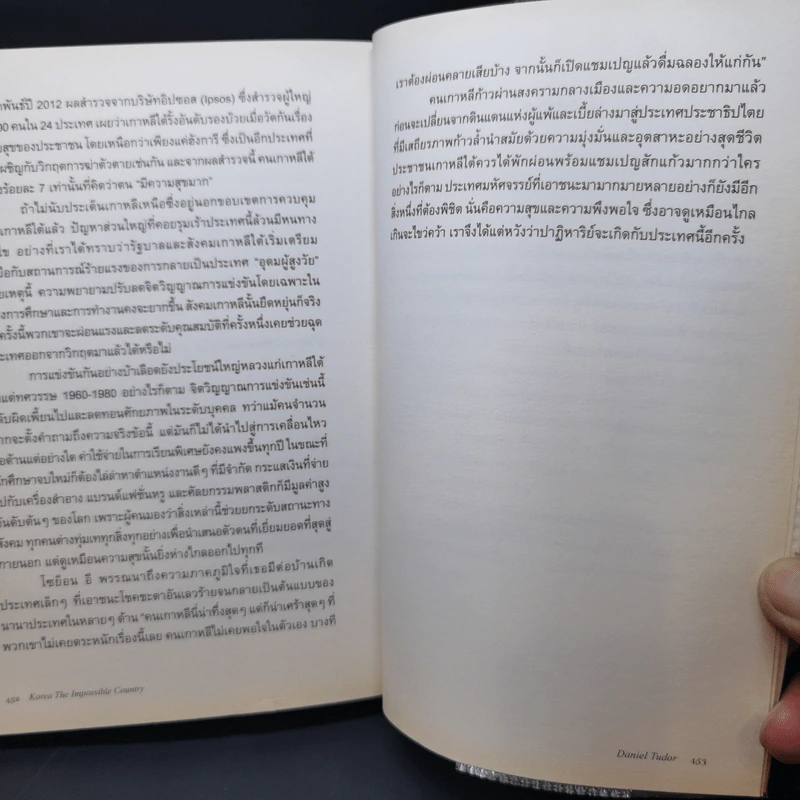 พันธ์ปี 2012 ผลสำรวจจากบริษัทอิปซอส (Ipsos) ซึ่งสำรวจผู้ใหญ่
00 คนใน 24 ประเทศ เผยว่าเกาหลีใต้รั้งอันดับรองบ๊วยเมื่อวัดกันเรื่อง
สุขของประชาชน โดยเหนือกว่าเพียงแค่ฮังการี ซึ่งเป็นอีกประเทศที่
ผชิญกับวิกฤตการฆ่าตัวตายเช่นกัน และจากผลสำรวจนี้ คนเกาหลีใต้
งร้อยละ 7 เท่านั้นที่คิดว่าตน "มีความสุขมาก"
ถ้าไม่นับประเด็นเกาหลีเหนือซึ่งอยู่นอกขอบเขตการควบคุม
เกาหลีใต้แล้ว ปัญหาส่วนใหญ่ที่คอยรุมเร้าประเทศนี้ล้วนมีหนทาง
ไข อย่างที่เราได้ทราบว่ารัฐบาลและสังคมเกาหลีใต้เริ่มเตรียม
มือกับสถานการณ์ร้ายแรงของการกลายเป็นประเทศ "อุดมผู้สูงวัย"
ยเหตุนี้ ความพยายามปรับลดจิตวิญญาณการแข่งขันโดยเฉพาะใน
งการศึกษาและการทำงานคงจะยากขึ้น สังคมเกาหลีนั้นยืดหยุ่นก็จริง
ครั้งนี้พวกเขาจะผ่อนแรงและลดระดับคุณสมบัติที่ครั้งหนึ่งเคยช่วยฉุด
ระเทศออกจากวิกฤตมาแล้วได้หรือไม่
การแข่งขันอย่างบ้าเลือดยังประโยชน์ใหญ่หลวงแก่เกาหลีใต้
แต่ทศวรรษ 1960-1980 อย่างไรก็ตาม จิตวิญญาณการแข่งขันเช่นนี้
ลับผิดเพี้ยนไปและลดทอนศักยภาพในระดับบุคคล ทว่าแม้คนจำนวน
ากจะตั้งคำถามถึงความจริงข้อนี้ แต่มันก็ไม่ได้นำไปสู่การเคลื่อนไหว
อต้านแต่อย่างใด ค่าใช้จ่ายในการเรียนพิเศษยังคงแพงขึ้นทุกปี ในขณะที่
นักศึกษาจบใหม่ก็ต้องไล่ล่าหาตำแหน่งงานดีๆ ที่มีจำกัด กระแสเงินที่จ่าย
ไปกับเครื่องสำอาง แบรนด์แฟชั่นหรู และศัลยกรรมพลาสติกก็มีมูลค่าสูง
อันดับต้นๆ ของโลก เพราะผู้คนมองว่าสิ่งเหล่านี้ช่วยยกระดับสถานะทาง
สังคม ทุกคนต่างทุ่มเททุกสิ่งทุกอย่างเพื่อนำเสนอตัวตนที่เยี่ยมยอดที่สุดสู่
ภายนอก แต่ดูเหมือนความสุขนั้นยิ่งห่างไกลออกไปทุกที
โซย็อน อี พรรณนาถึงความภาคภูมิใจที่เธอมีต่อบ้านเกิด
ประเทศเล็กๆ ที่เอาชนะโชคชะตาอันเลวร้ายจนกลายเป็นต้นแบบของ
นานาประเทศในหลายๆ ด้าน "คนเกาหลีนี่น่าทึ่งสุดๆ แต่ก็น่าเศร้าสุดๆ ที่
พวกเขาไม่เคยตระหนักเรื่องนี้เลย คนเกาหลีไม่เคยพอใจในตัวเอง บางที
452 Korea The Impossible Country
เราต้องผ่อนคลายเสียบ้าง จากนั้นก็เปิดแชมเปญแล้วดื่มฉลองให้แก่กัน"
คนเกาหลีก้าวผ่านสงครามกลางเมืองและความอดอยากมาแล้ว
ก่อนจะเปลี่ยนจากดินแดนแห่งผู้แพ้และเบี้ยล่างมาสู่ประเทศประชาธิปไตย
ที่มีเสถียรภาพก้าวล้ำนำสมัยด้วยความมุ่งมั่นและอุตสาหะอย่างสุดชีวิต
ประชาชนเกาหลีใต้ควรได้พักผ่อนพร้อมแชมเปญสักแก้วมากกว่าใคร
อย่างไรก็ตาม ประเทศมหัศจรรย์ที่เอาชนะมามากมายหลายอย่างก็ยังมีอีก
สิ่งหนึ่งที่ต้องพิชิต นั่นคือความสุขและความพึงพอใจ ซึ่งอาจดูเหมือนไกล
เกินจะไขว่คว้า เราจึงได้แต่หวังว่าปาฏิหาริย์จะเกิดกับประเทศนี้อีกครั้ง
Daniel Tudor 453